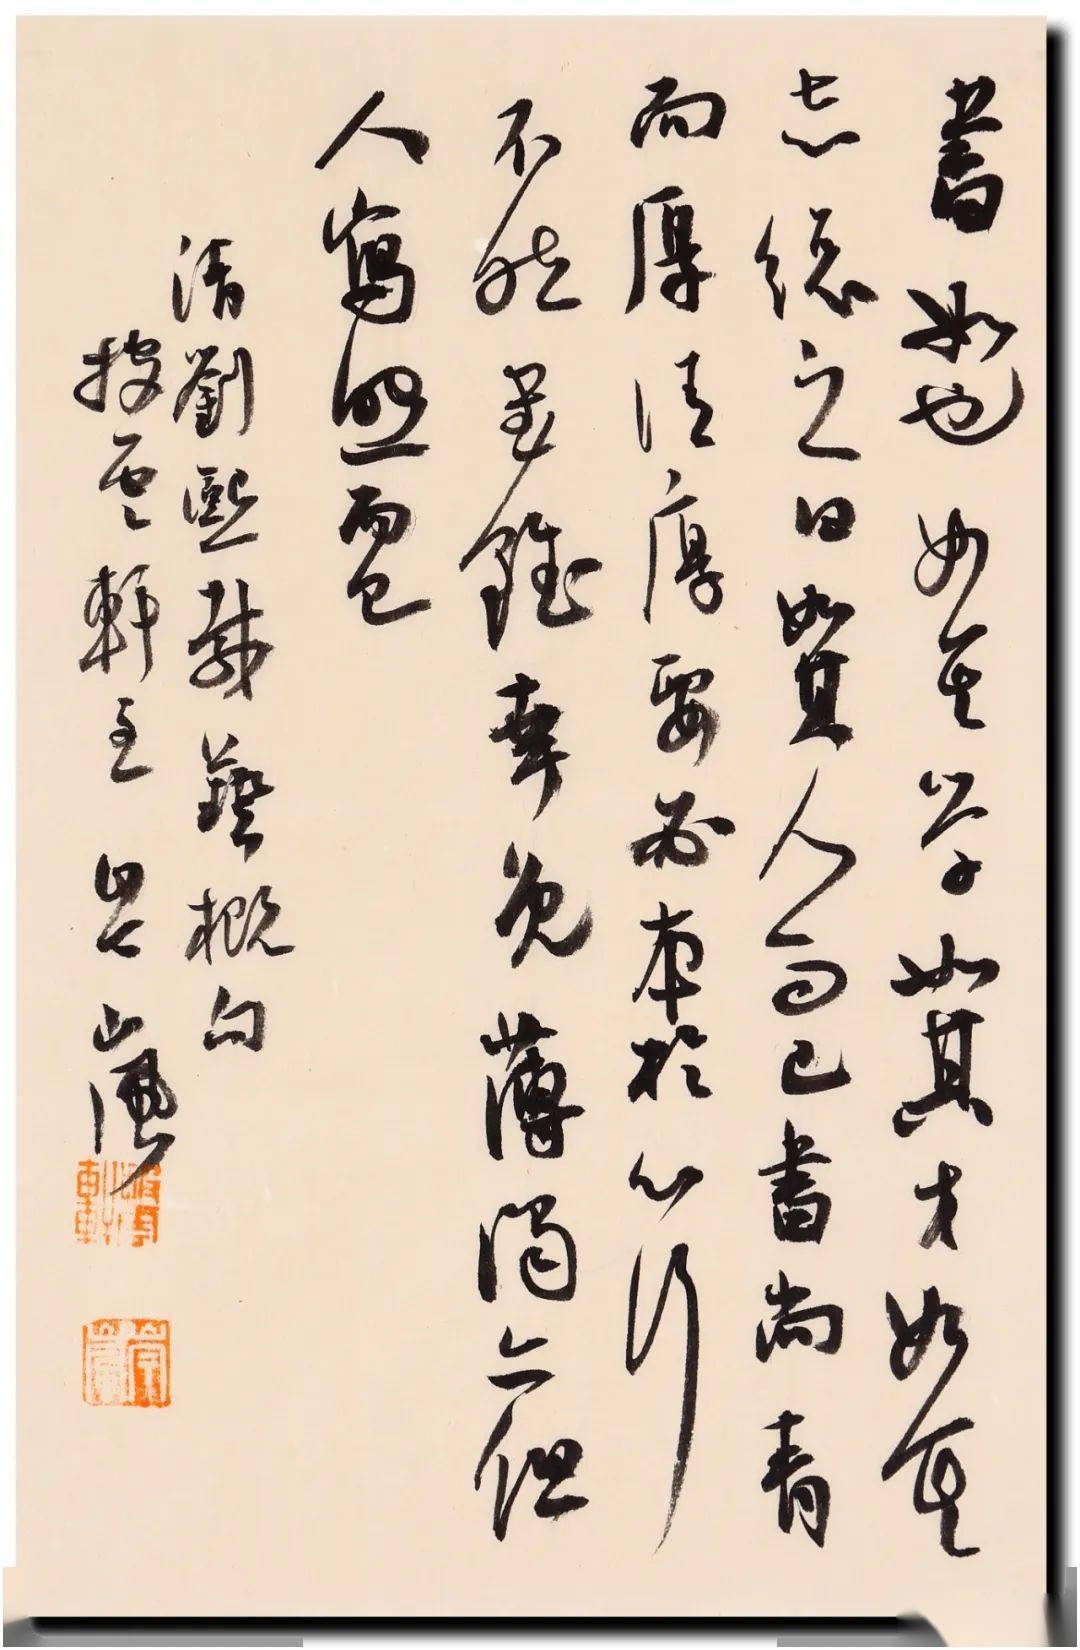 書如也如其学如其才如其
志總之曰如其人而已書尚青
而厚清厚要必本於心行
不然書雖幸免薄濁亦但
人寫照而已
清劉熙載藝概句
披雲軒主 嵐